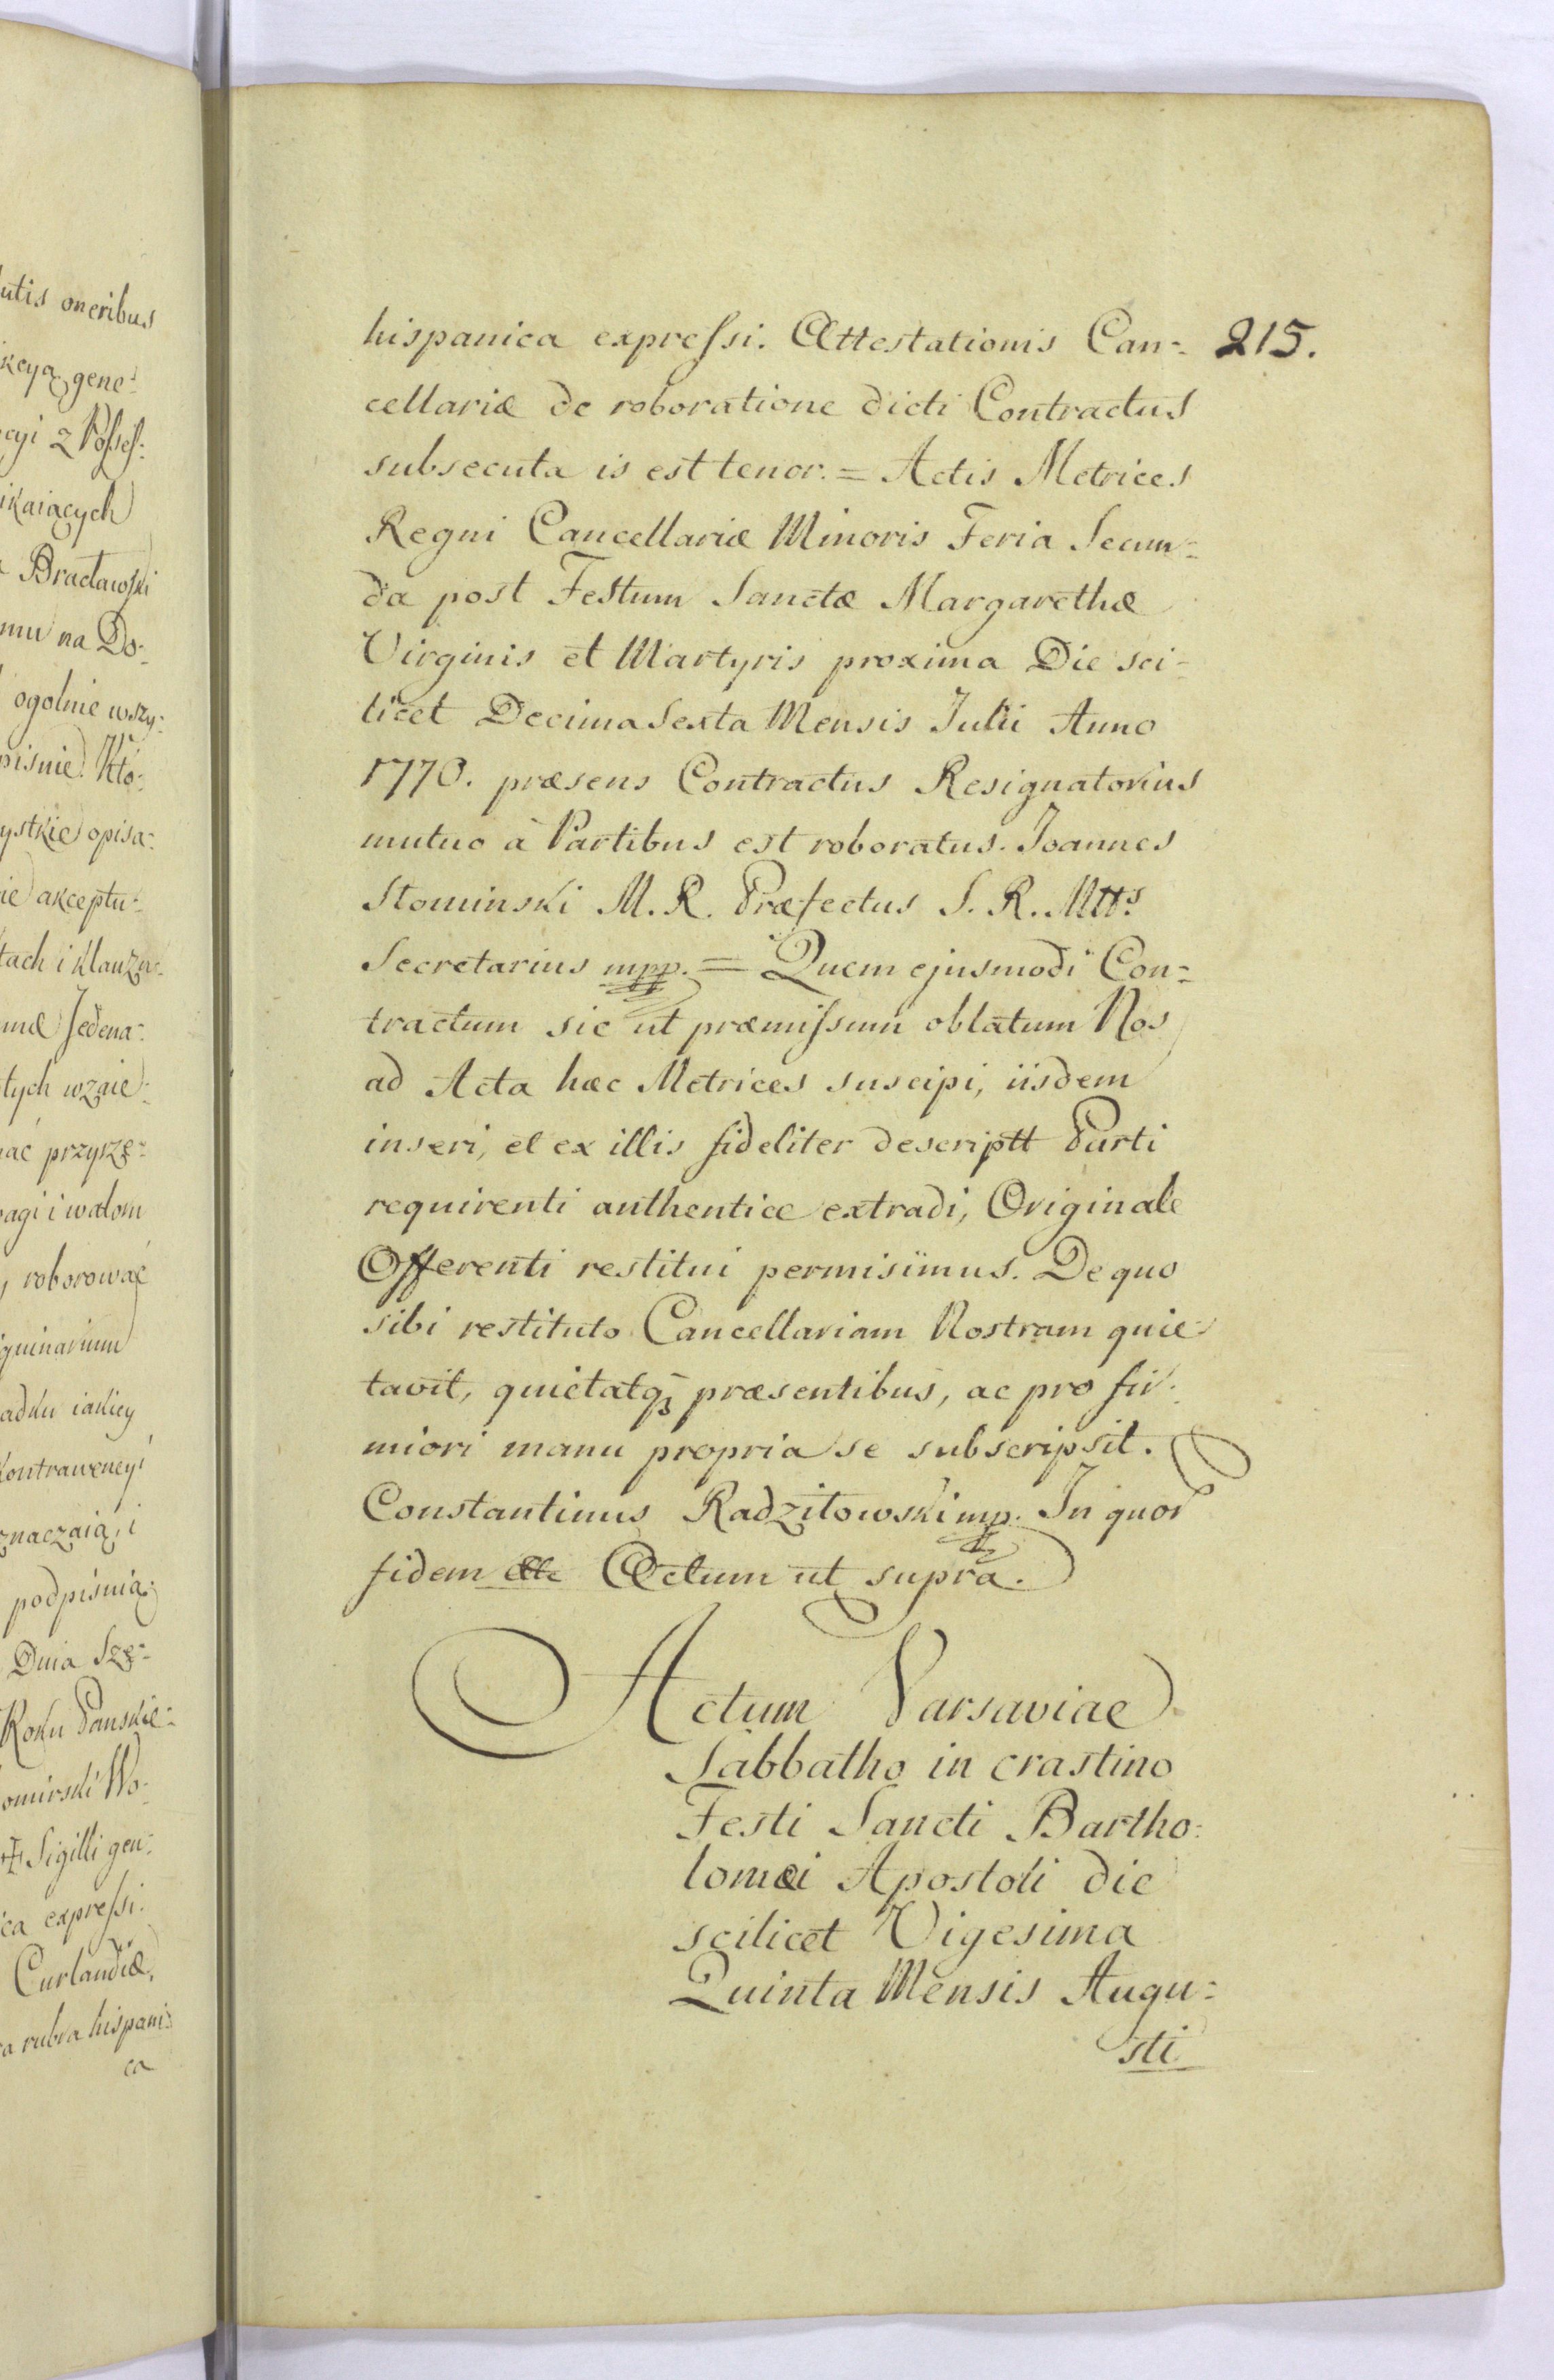 utis oneribus
kcyą gene-
cyi z Posses:
ikaiących
Bracławski
mu na Do:
ogolnie wszy:
pisnie. Kto:
ystkie opisa:
ie akceptu:
tach i klauzu:
Jedena:
tych wzaie:
ac przyszę:
agi i walom
roborować
iguinarium
adku iakiey
kontrawencyi
znaczaią, i
podpisuią
Dnia Szę:
Roku Panskie:
omirski Wo:
Sigilli gen:
ca expressi.
Curlandiæ,
a rubra hispani:
ca
215.
hispanica expressi. Attestationis Can:
cellariæ de roboratione dicti Contractus
subsecuta is est tenor. = Actis Metrices
Regni Cancellariæ Minoris Feria Secun:
da post Festum Sanctæ Margarethæ
Virginis et Martyris proxima Die sci-
licet Decima Sexta Mensis Julii Anno
1770. præsens Contractus Resignatorius
mutuo à Partibus est roboratus. Joannes
Słominski M. R. Præfectus S. R. Mtts
Secretarius mpp. = Quem ejusmodi Con:
tractum sic ut præmissum oblatum Nos
ad Acta hæc Metrices suscipi, iisdem
inseri, et ex illis fideliter descriptt Parti
requirenti authentice extradi, Originale
Offerenti restitui permisimus. De quo
sibi restituto Cancellariam Nostram quie:
tavit, quietatq; præsentibus, ac pro fir:
miori manu propria se subscripsit.
Constantinus Radziłowski mp. In quor
fidem etc Actum ut supra.
Actum Varsaviae
Sabbatho in crastino
Festi Sancti Bartho:
lomæi Apostoli die
scilicet Vigesima
Quinta Mensis Augu:
sti